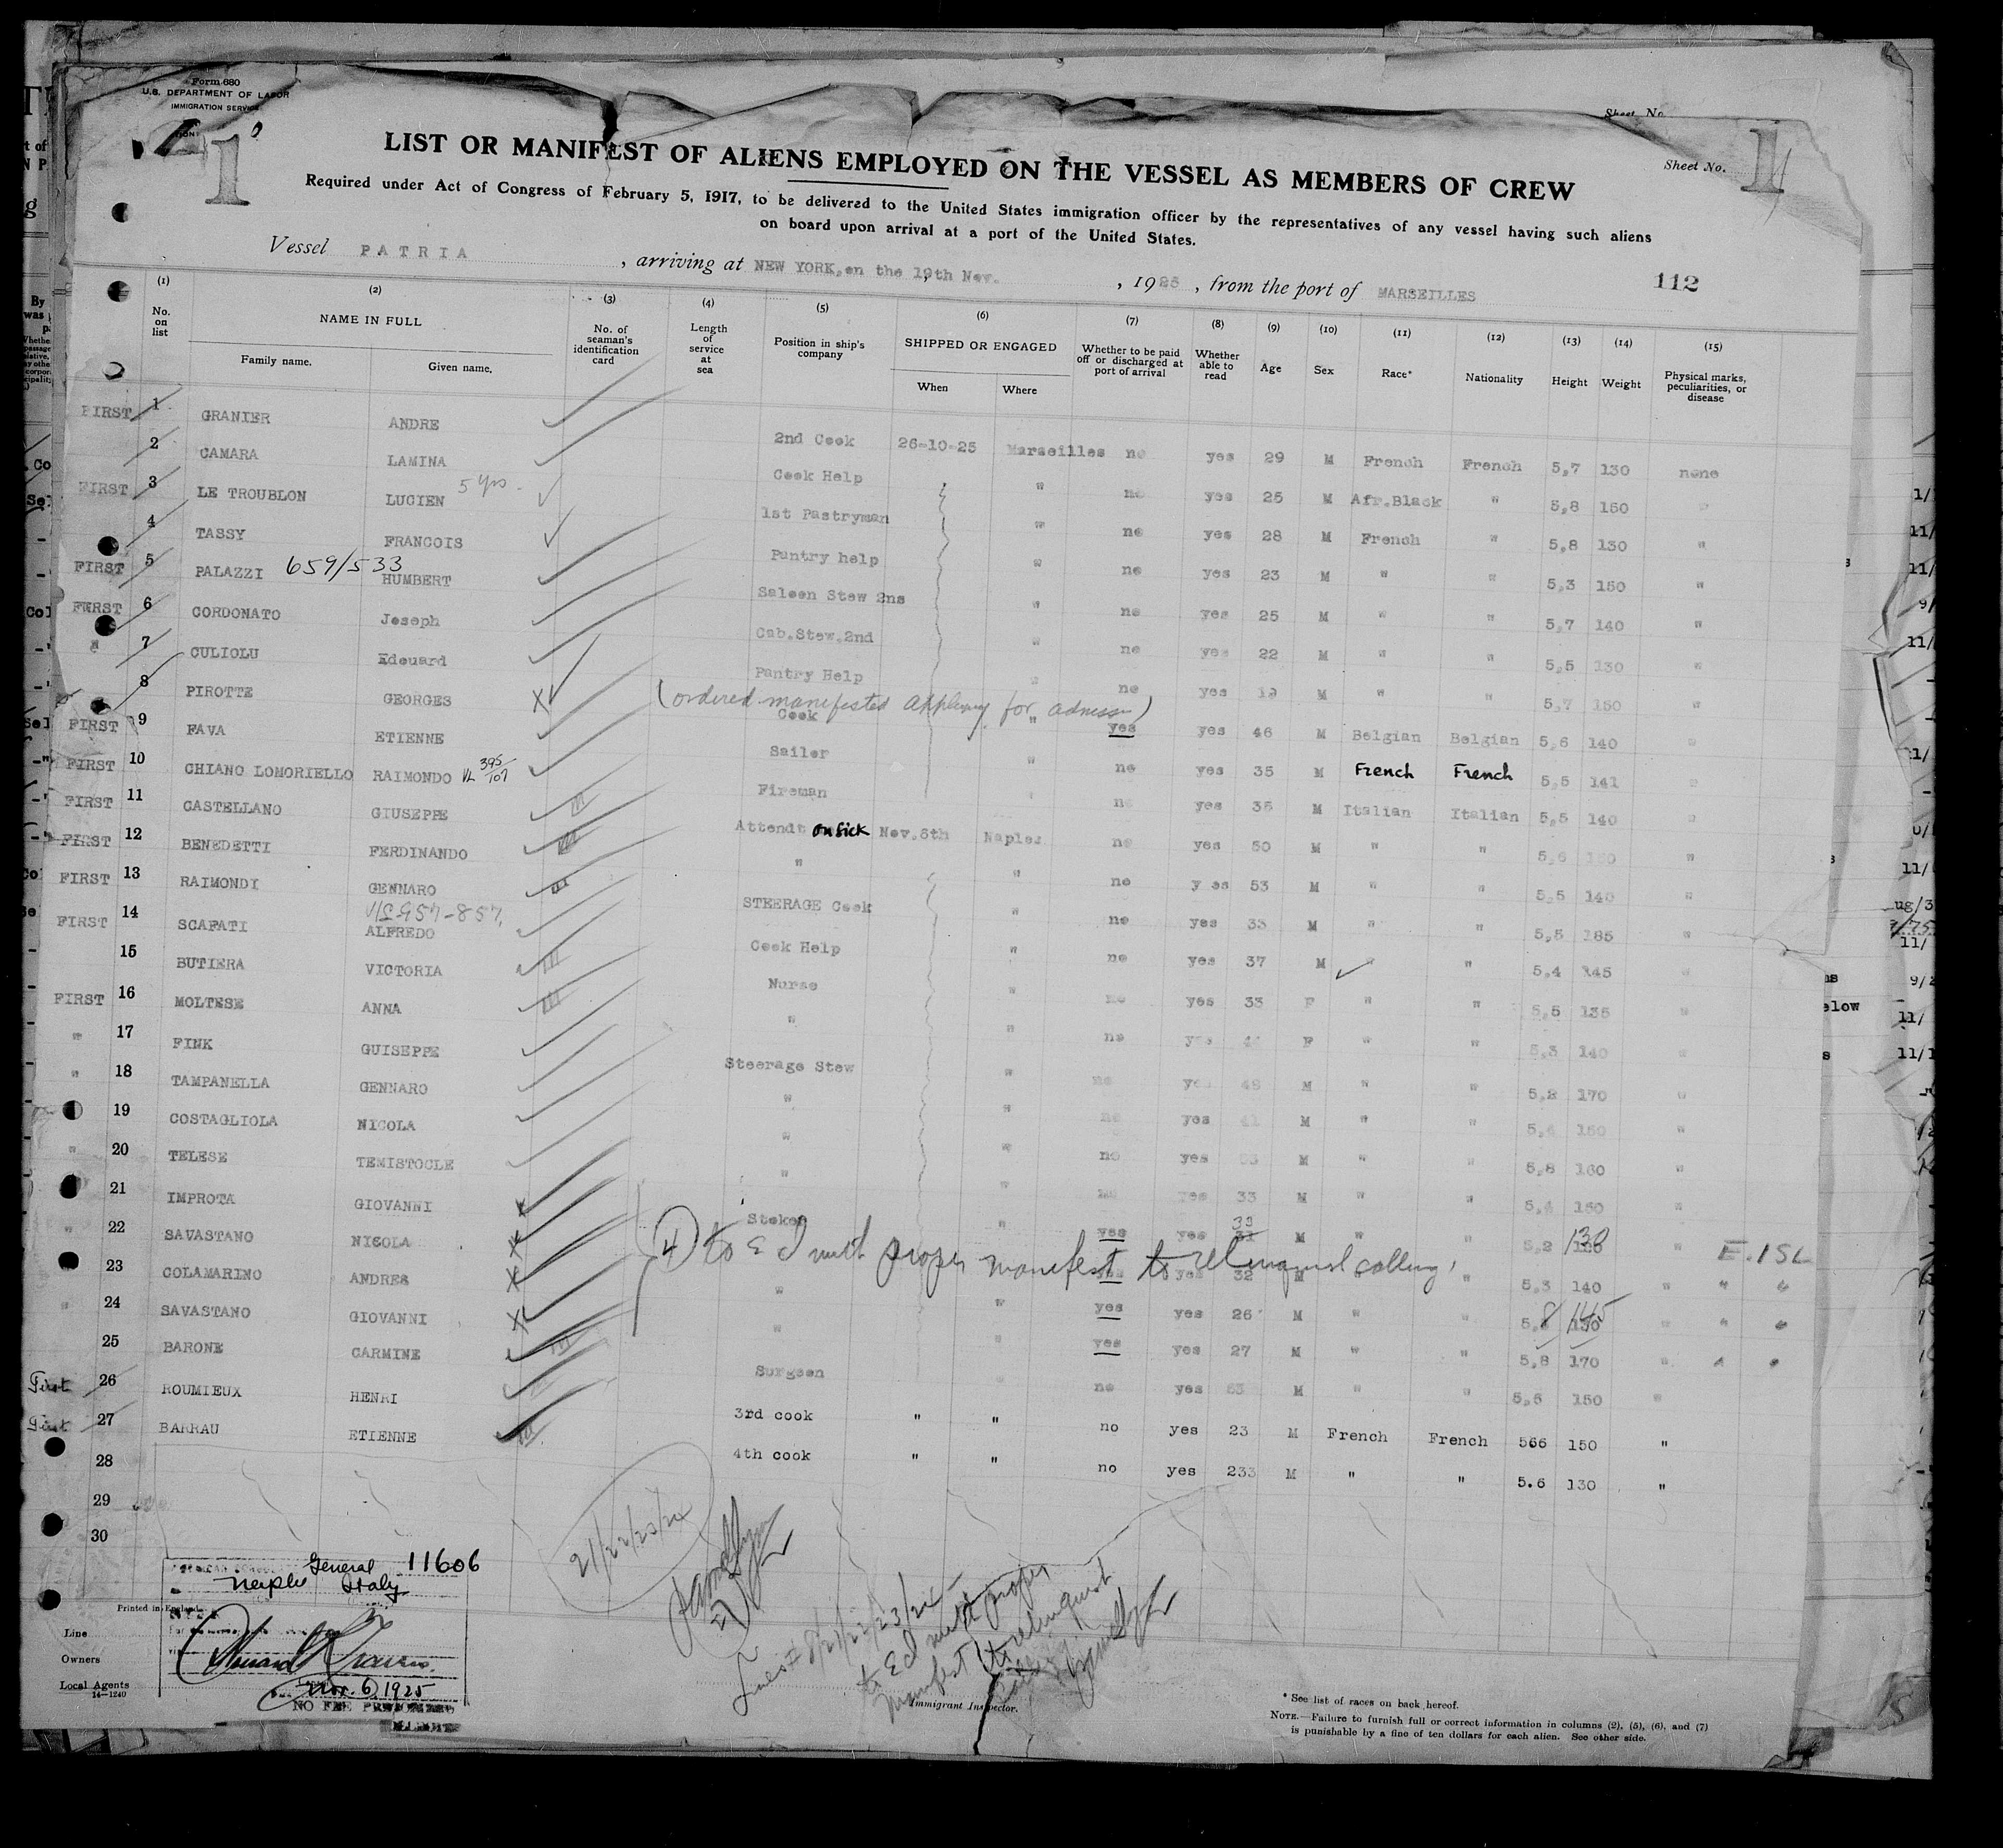 Form 680
U.S. DEPARTMENT OF LABOR
IMMIGRATION SERVICE
Sheet No.
1
LIST OR MANIFEST OF ALIENS EMPLOYED ON THE VESSEL AS MEMBERS OF CREW
Sheet No. 1
Required under Act of Congress of February 5, 1917, to be delivered to the United States immigration officer by the representatives of any vessel having such aliens
on board upon arrival at a port of the United States.
Vessel PATRIA , arriving at NEW YORK, on the 19th Nov. , 1925 , from the port of MARSEILLES 112
(1) (2) (3) (4) (5) (6) (7) (8) (9) (10) (11) (12) (13) (14) (15)
No. on list NAME IN FULL Family name. Given name. No. of seaman's identification card Length of service at sea Position in ship's company SHIPPED OR ENGAGED When Where Whether to be paid off or discharged at port of arrival Whether able to read Age Sex Race* Nationality Height Weight Physical marks, peculiarities, or disease
FIRST 1 GRANIER ANDRE 2nd Cook 26-10-25 Marseilles no yes 29 M French French 5,7 130 none
2 CAMARA LAMINA Cook Help " no yes 25 M Afr.Black " 5,8 150 "
FIRST 3 LE TROUBLON LUCIEN 5 yrs. 1st Pastryman " no yes 28 M French " 5,8 130 "
4 TASSY FRANCOIS Pantry help " no yes 23 M " " 5,3 150 "
FIRST 5 PALAZZI 659/533 HUMBERT Saloon Stew 2ns " no yes 25 M " " 5,7 140 "
FIRST 6 CORDONATO Joseph Cab.Stew.2nd " no yes 22 M " " 5,5 130 "
" 7 CULIOLU Edouard Pantry Help " no yes 19 M " " 5,7 150 "
(ordered manifested applying for admission)
8 PIROTTE GEORGES X Cook " yes yes 46 M Belgian Belgian 5,6 140 "
FIRST 9 FAVA ETIENNE Sailor " no yes 35 M French French 5,5 141 "
FIRST 10 CHIANO LOMORIELLO RAIMONDO VL 395/107 Fireman " no yes 35 M Italian Italian 5,5 140 "
FIRST 11 CASTELLANO GIUSEPPE Attendt on sick Nov.6th Naples no yes 50 M " " 5,6 "
FIRST 12 BENEDETTI FERDINANDO " " no yes 53 M " " 5,5 140 "
FIRST 13 RAIMONDI GENNARO STEERAGE Cook " no yes 33 M " " 5,5 185 "
FIRST 14 SCAFATI ALFREDO Cook Help " no yes 37 M " " 5,4 145 "
15 BUTIERA VICTORIA Nurse " no yes 33 F " " 5,5 135 "
FIRST 16 MOLTESE ANNA " " no yes F " " 5,3 140 "
" 17 FINK GUISEPPE Steerage Stew " no yes 48 M " " 5,8 170 "
" 18 TAMPANELLA GENNARO " " no yes 41 M " " 5,4 150 "
19 COSTAGLIOLA NICOLA " " no yes M " " 5,8 160 "
" 20 TELESE TEMISTOCLE " " no yes 33 M " " 5,4 150 "
21 IMPROTA GIOVANNI X Stoker " yes yes 33 M " " 5,2 130 " E. ISL
" 22 SAVASTANO NICOLA X " yes yes 32 M " " 5,3 140 " " "
(4) to E I with proper manifest to relinquish calling
23 COLAMARINO ANDRES X " " yes yes 26 M " " 5,8 145 " " "
" 24 SAVASTANO GIOVANNI X " " yes yes 27 M " " 5,8 170 " " "
25 BARONE CARMINE Surgeon " no yes M " " 5,5 150 "
First 26 ROUMIEUX HENRI 3rd cook " " no yes 23 M French French 566 150 "
First 27 BARRAU ETIENNE 4th cook " " no yes 233 M " " 5.6 130 "
28
29
30
21/22/23/24
Lines # 8/21/22/23/24
to E I with proper
manifest to relinquish
calling
General 11606
Naples Italy
Nov. 6, 1925
NO FEE PRESCRIBED
Printed in England
Line
Owners
Local Agents
14—1240
Immigrant Inspector.
* See list of races on back hereof.
NOTE.—Failure to furnish full or correct information in columns (2), (5), (6), and (7)
is punishable by a fine of ten dollars for each alien. See other side.